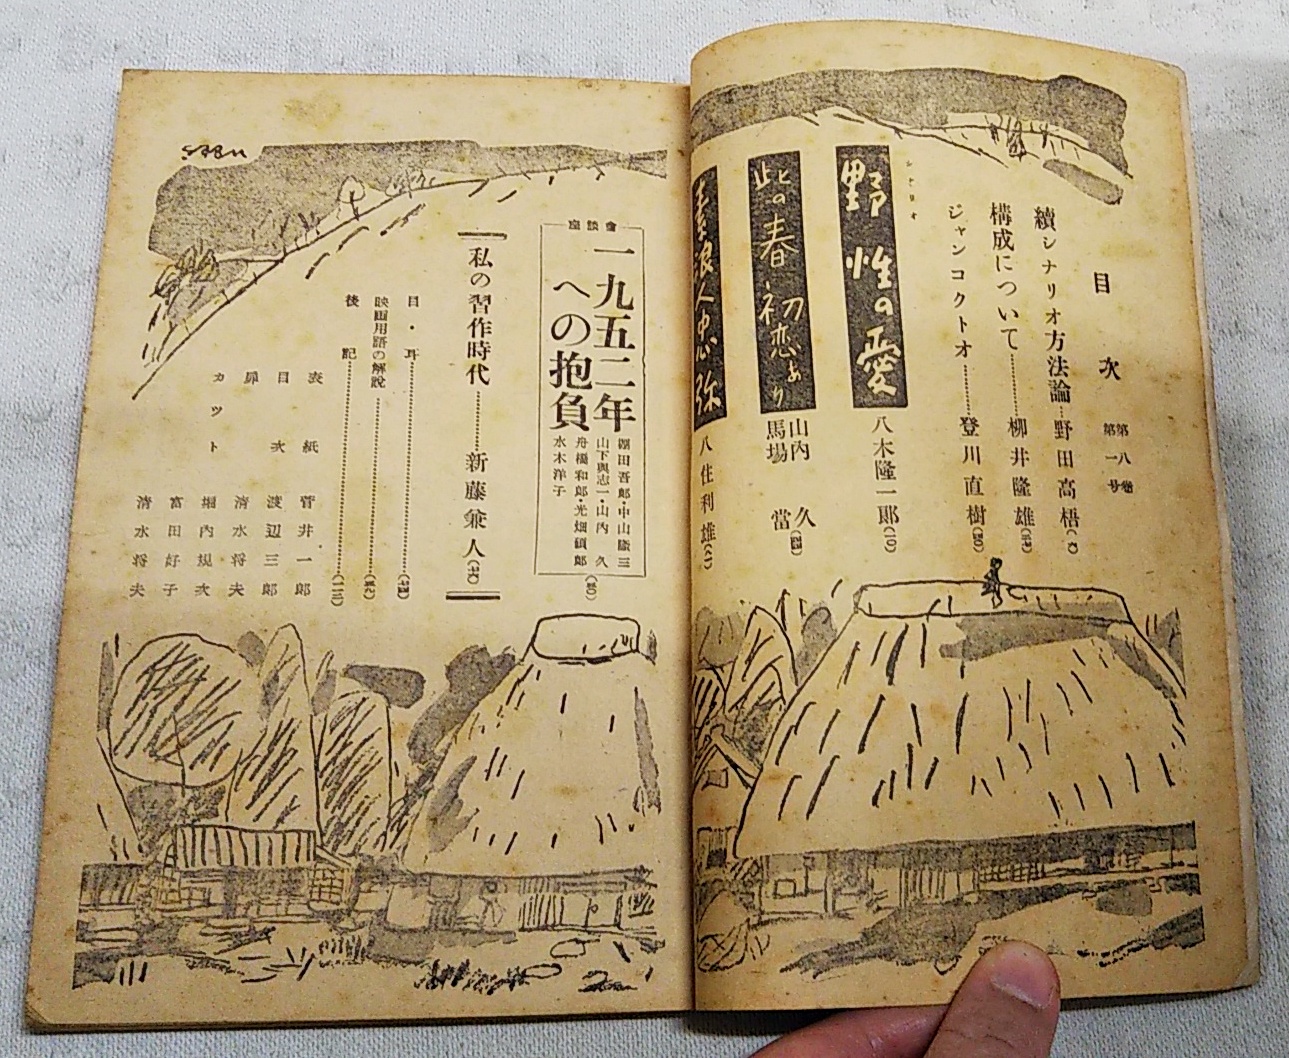 目次
第八巻
第一号
續シナリオ方法論…野田高梧
構成について……柳井隆雄
ジャンコクトオ……登川直樹
シナリオ
野性の愛
八木隆一郎(一〇)
此の春初恋あり
山内久
馬場當
素浪人忠弥
八住利雄
座談會
一九五二年
への抱負
山下與志一・山内久
舟橋和郎・光畑碩郎
水木洋子
私の習作時代……新藤兼人
目・耳
映画用語の解説
後記
表紙 菅井一郎
目次 渡辺三郎
扉 清水将夫
カット 堀内規次
富田好子
清水将夫